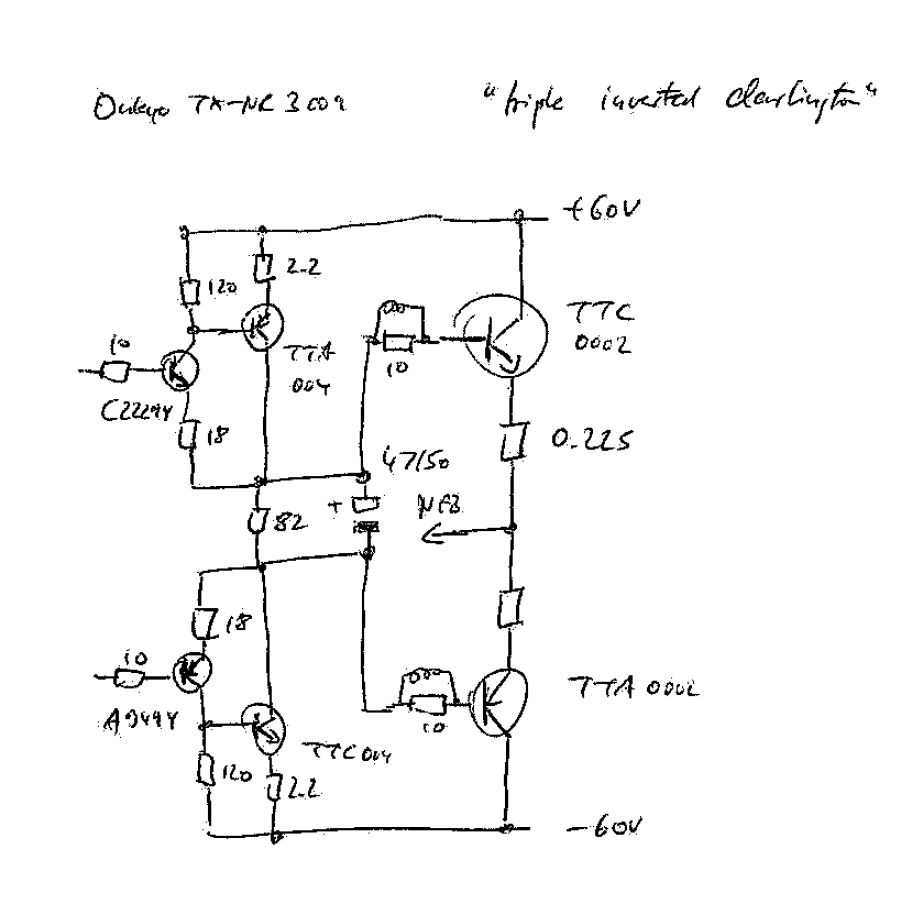 Onkyo TX-NR 3009
"triple inverted darlington"
+60V
2.2
120
TTC
0002
10
TTA
004
10
C2229Y
18
0.22S
47/50
+
NFB
82
18
10
TTA 0002
A949Y
10
TTC004
120
2.2
-60V